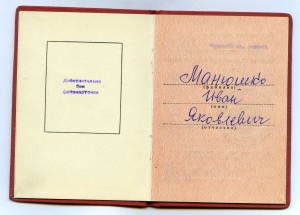 Действительно
без
фотокарточки
Манюшко
(фамилия)
Иван
(имя)
Яковлевич
(отчество)